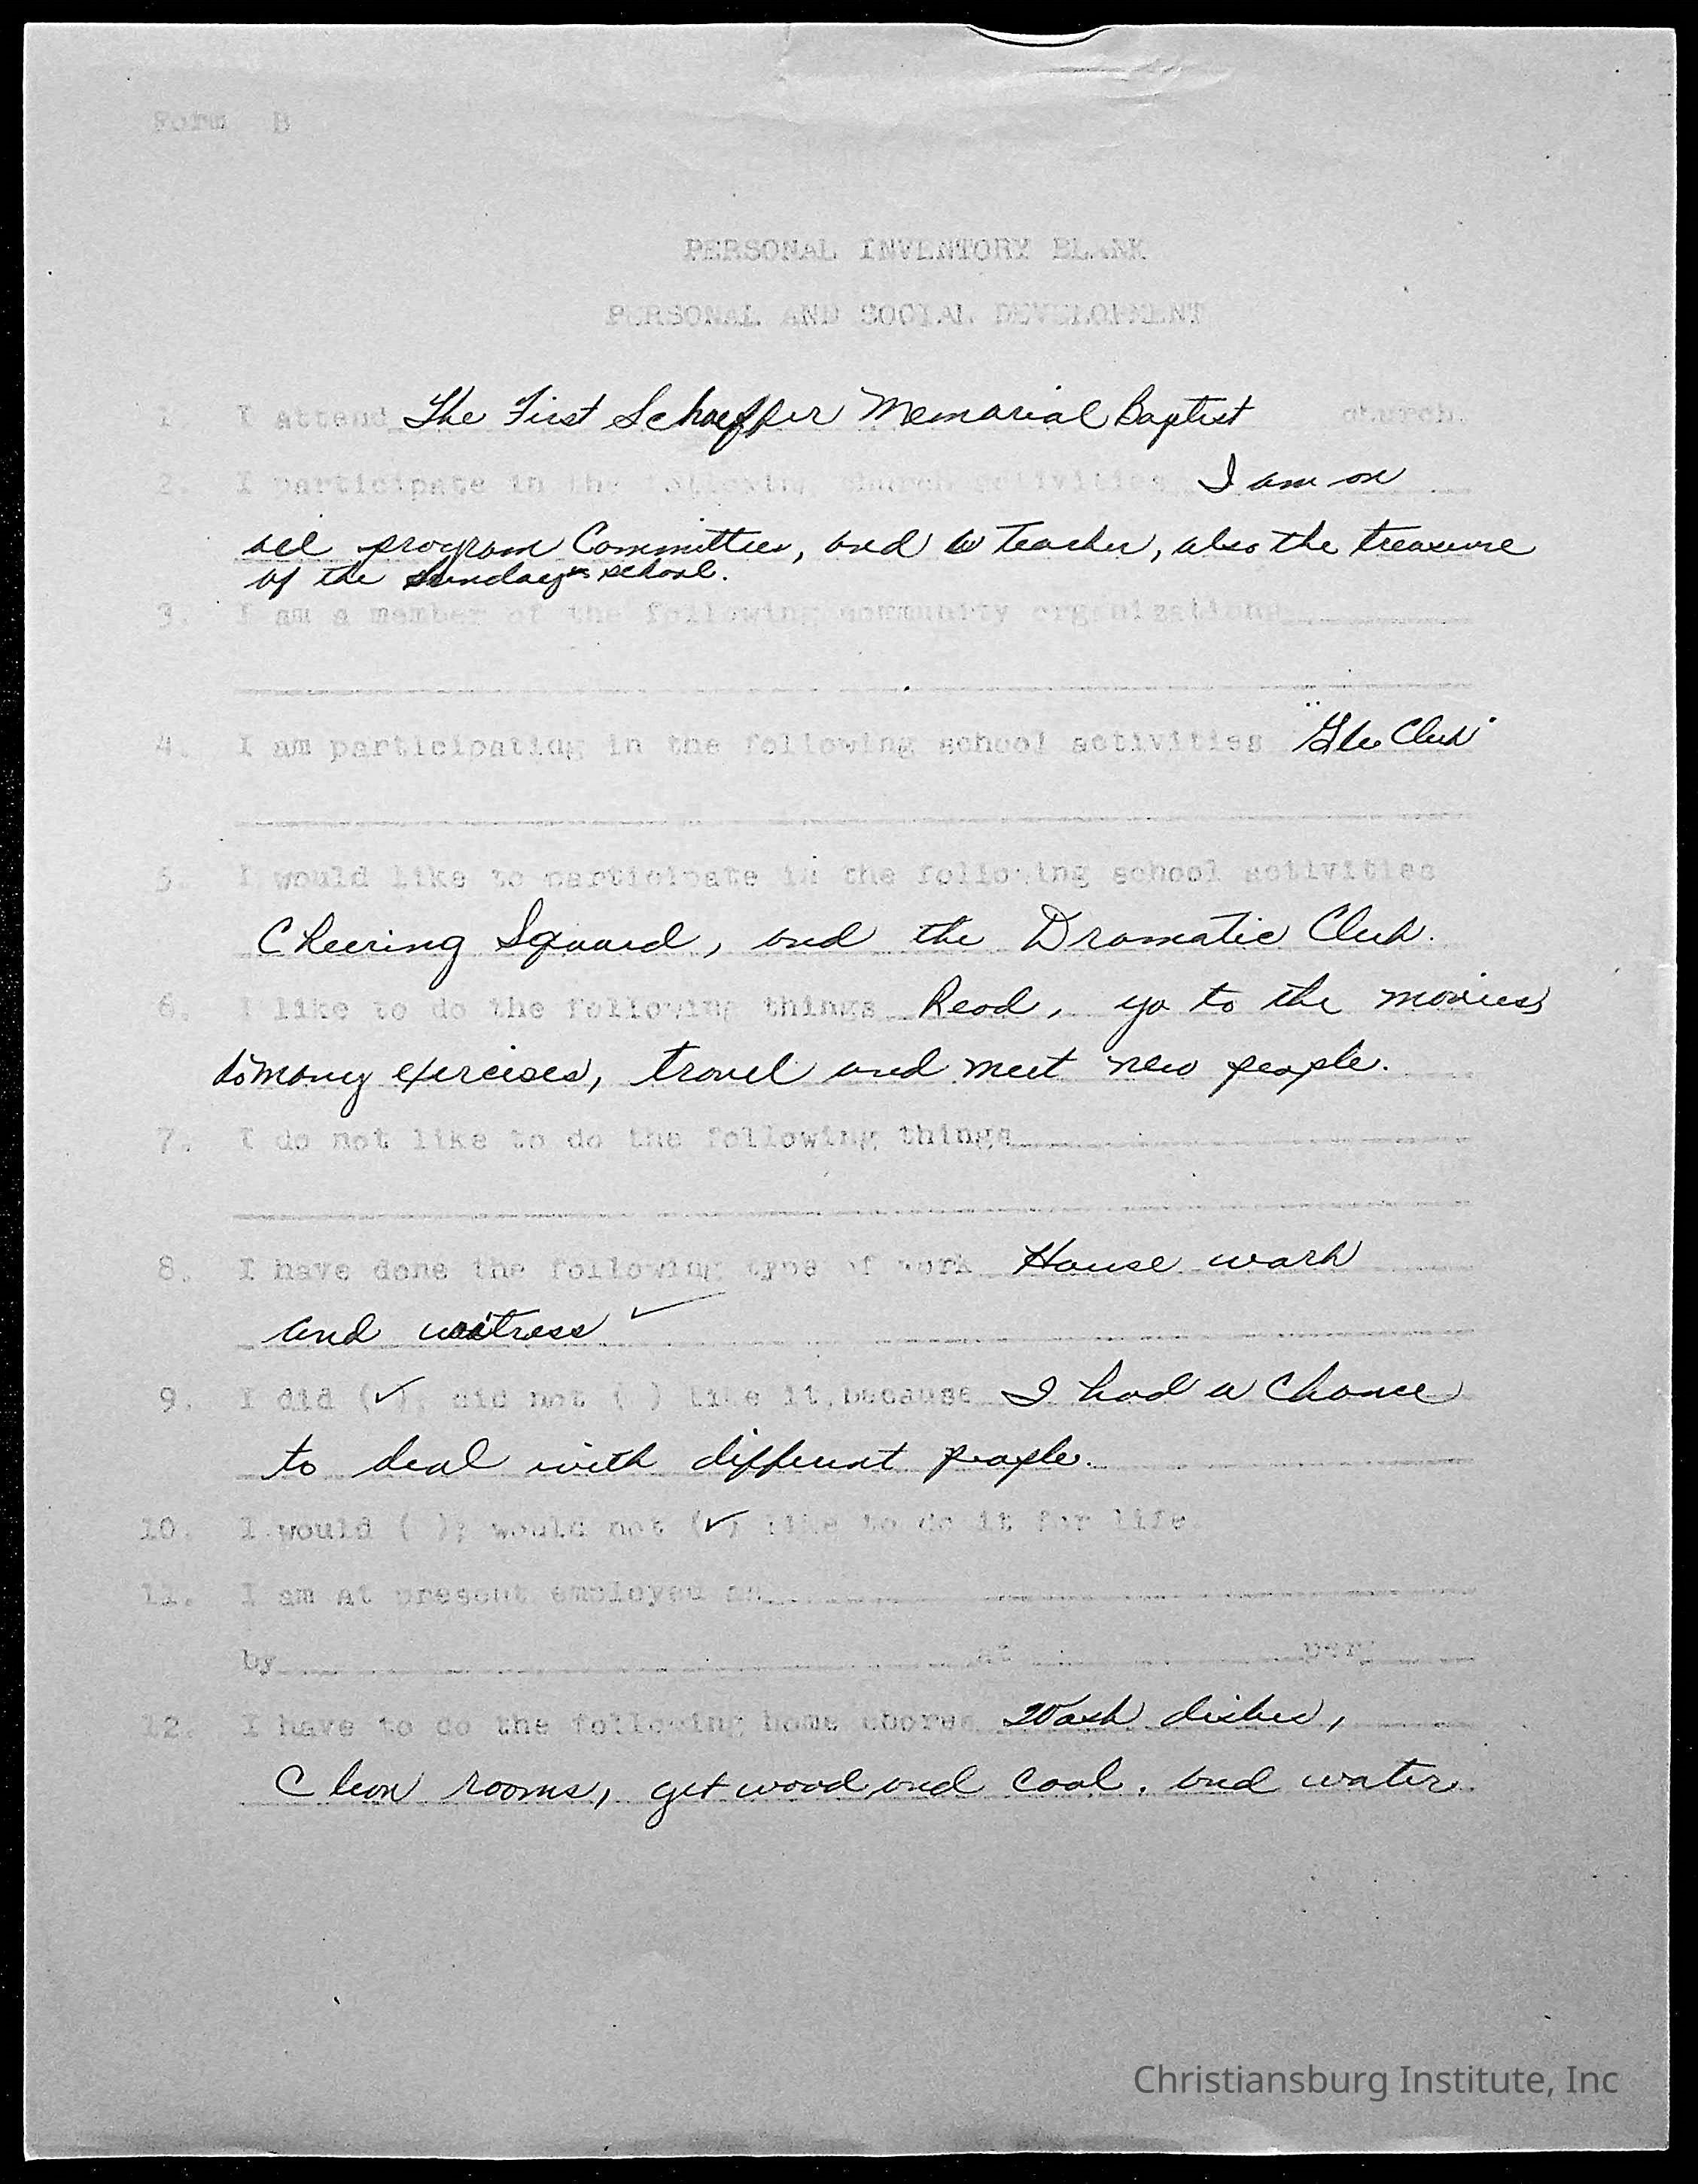 Form B
PERSONAL INVENTORY BLANK
PERSONAL AND SOCIAL DEVELOPMENT
1. I attend The First Schaeffer Memorial Baptist church.
2. I participate in the following church activities I am on
all program Committies, and a Teacher, also the treasure
of the Sunday school.
3. I am a member of the following community organizations
4. I am participating in the following school activities "Glee Club"
5. I would like to participate in the following school activities
Cheering Sqauard, and the Dramatic Club.
6. I like to do the following things Read, go to the movies,
do many exercises, travel and meet new people.
7. I do not like to do the following things
8. I have done the following type of work House work
and waitress ✓
9. I did (✓); did not ( ) like it, because I had a chance
to deal with different people.
10. I would ( ); would not (✓) like to do it for life.
11. I am at present employed as
by at per
12. I have to do the following home chores Wash dishes,
Clean rooms, get wood and coal, and water.
Christiansburg Institute, Inc